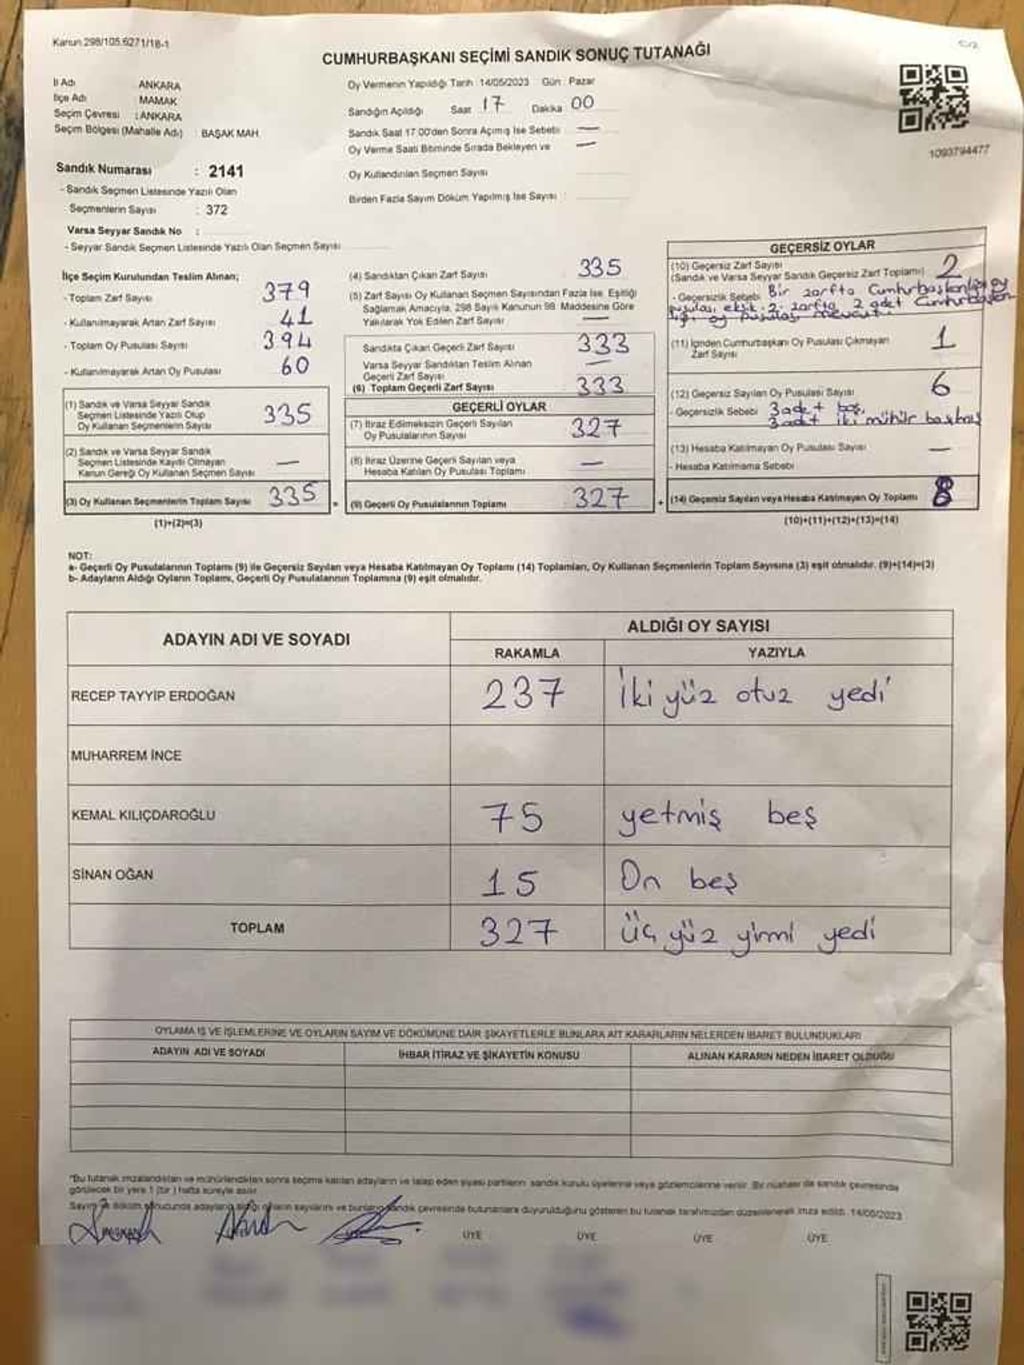 Kanun 298/105.6271/18-1
C/2
CUMHURBAŞKANI SEÇİMİ SANDIK SONUÇ TUTANAĞI
İl Adı ANKARA
İlçe Adı MAMAK
Seçim Çevresi : ANKARA
Seçim Bölgesi (Mahalle Adı) : BAŞAK MAH.
Oy Vermenin Yapıldığı Tarih : 14/05/2023 Gün : Pazar
Sandığın Açıldığı Saat 17 Dakika 00
Sandık Saat 17.00'den Sonra Açımış İse Sebebi —
Oy Verme Saati Bitiminde Sırada Bekleyen ve —
Oy Kullandırılan Seçmen Sayısı
Birden Fazla Sayım Döküm Yapılmış İse Sayısı :
1093794477
Sandık Numarası : 2141
- Sandık Seçmen Listesinde Yazılı Olan
Seçmenlerin Sayısı : 372
Varsa Seyyar Sandık No :
- Seyyar Sandık Seçmen Listesinde Yazılı Olan Seçmen Sayısı
İlçe Seçim Kurulundan Teslim Alınan;
- Toplam Zarf Sayısı 379
- Kullanılmayarak Artan Zarf Sayısı 41
- Toplam Oy Pusulası Sayısı 394
- Kullanılmayarak Artan Oy Pusulası 60
(1) Sandık ve Varsa Seyyar Sandık
Seçmen Listesinde Yazılı Olup
Oy Kullanan Seçmenlerin Sayısı 335
(2) Sandık ve Varsa Seyyar Sandık
Seçmen Listesinde Kaydı Olmayan
Kanun Gereği Oy Kullanan Seçmen Sayısı —
(3) Oy Kullanan Seçmenlerin Toplam Sayısı 335 =
(1)+(2)=(3)
(4) Sandıktan Çıkan Zarf Sayısı 335
(5) Zarf Sayısı Oy Kullanan Seçmen Sayısından Fazla İse, Eşitliği
Sağlamak Amacıyla, 298 Sayılı Kanunun 98. Maddesine Göre
Yakılarak Yok Edilen Zarf Sayısı —
Sandıkta Çıkan Geçerli Zarf Sayısı 333
Varsa Seyyar Sandıktan Teslim Alınan
Geçerli Zarf Sayısı —
(6) Toplam Geçerli Zarf Sayısı 333
GEÇERLİ OYLAR
(7) İtiraz Edilmeksizin Geçerli Sayılan
Oy Pusulalarının Sayısı 327
(8) İtiraz Üzerine Geçerli Sayılan veya
Hesaba Katılan Oy Pusulası Toplamı —
(9) Geçerli Oy Pusulalarının Toplamı 327 +
GEÇERSİZ OYLAR
(10) Geçersiz Zarf Sayısı
(Sandık ve Varsa Seyyar Sandık Geçersiz Zarf Toplamı) 2
- Geçersizlik Sebebi Bir zarfta Cumhurbaşkanlığı oy
pusulası eksik. 2. zarfta 2 adet Cumhurbaşkan
lığı oy pusulası mevcuttu
(11) İçinden Cumhurbaşkanı Oy Pusulası Çıkmayan
Zarf Sayısı 1
(12) Geçersiz Sayılan Oy Pusulası Sayısı 6
- Geçersizlik Sebebi 3 adet boş,
3 adet iki mühür basılmış
(13) Hesaba Katılmayan Oy Pusulası Sayısı —
- Hesaba Katılmama Sebebi
(14) Geçersiz Sayılan veya Hesaba Katılmayan Oy Toplamı 8
(10)+(11)+(12)+(13)=(14)
NOT:
a- Geçerli Oy Pusulalarının Toplamı (9) ile Geçersiz Sayılan veya Hesaba Katılmayan Oy Toplamı (14) Toplamları, Oy Kullanan Seçmenlerin Toplam Sayısına (3) eşit olmalıdır. (9)+(14)=(3)
b- Adayların Aldığı Oyların Toplamı, Geçerli Oy Pusulalarının Toplamına (9) eşit olmalıdır.
ADAYIN ADI VE SOYADI
ALDIĞI OY SAYISI
RAKAMLA YAZIYLA
RECEP TAYYİP ERDOĞAN 237 İki yüz otuz yedi
MUHARREM İNCE
KEMAL KILIÇDAROĞLU 75 yetmiş beş
SİNAN OĞAN 15 On beş
TOPLAM 327 üç yüz yirmi yedi
OYLAMA İŞ VE İŞLEMLERİNE VE OYLARIN SAYIM VE DÖKÜMÜNE DAİR ŞİKAYETLERLE BUNLARA AİT KARARLARIN NELERDEN İBARET BULUNDUKLARI
ADAYIN ADI VE SOYADI İHBAR İTİRAZ VE ŞİKAYETİN KONUSU ALINAN KARARIN NEDEN İBARET OLDUĞU
"Bu tutanak imzalandıktan ve mühürlendikten sonra seçime katılan adayların ve talep eden siyasi partilerin sandık kurulu üyelerine veya gözlemcilerine verilir. Bir nüshası da sandık çevresinde
görülecek bir yere 1 (bir) hafta süreyle asılır.
Sayım ve döküm sonucunda adayların aldığı oyların sayılarını ve bunların sandık çevresinde bulunanlara duyurulduğunu gösteren bu tutanak tarafımızdan düzenlenerek imza edildi. 14/05/2023
ÜYE ÜYE ÜYE ÜYE